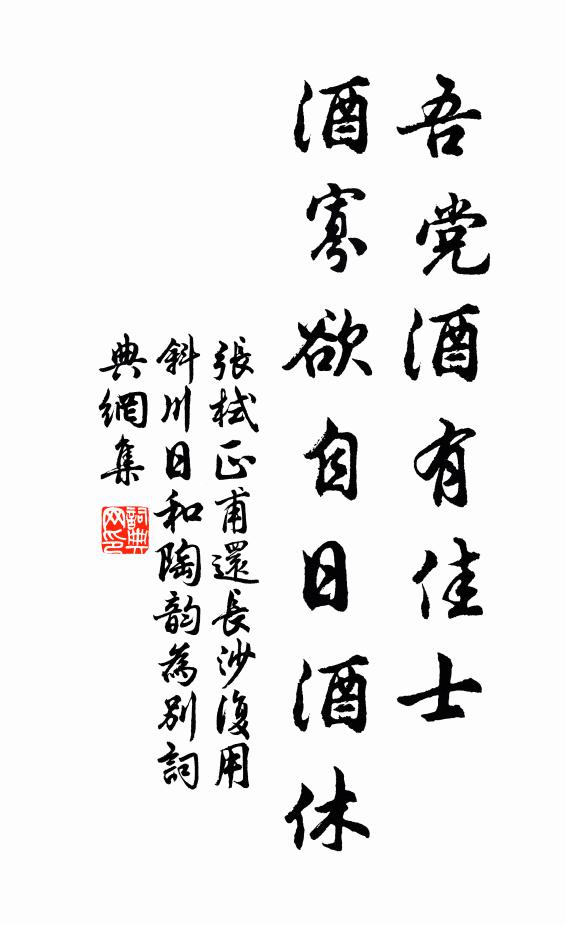 吾党酒有佳士
酒寡欲自日酒休
張栻正甫還長沙復用
斜川日和陶韵為別詞
典網集
詞典
网印